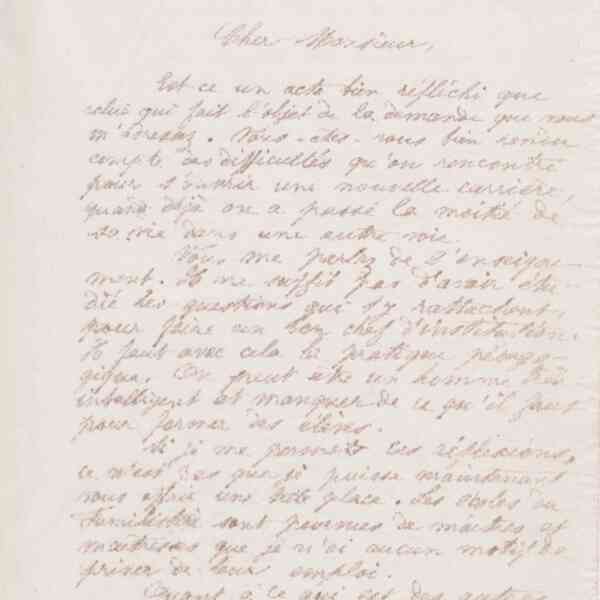 Cher Monsieur,
Est ce un acte bien réfléchi que
celui qui fait l'objet de la demande que vous
m'adressez. Vous êtes-vous bien rendu
compte des difficultés qu'on rencontre
pour s'ouvrir une nouvelle carrière,
quand déjà on a passé la moitié de
sa vie dans une autre voie.
Vous me parlez de l'enseigne-
ment. Il ne suffit pas d'avoir étu-
dié les questions qui s'y rattachent,
pour faire un bon chef d'institution.
Il faut avec cela la pratique pédago-
gique. On peut être un homme très
intelligent et manquer de ce qu'il faut
pour former des élèves.
Si je me permets ces réflexions,
ce n'est pas que je puisse maintenant
vous offrir une telle place. Les écoles du
Familistère sont pourvues de maîtres et
maîtresses que je n'ai aucun motif de
priver de leur emploi.
Quant à ce qui est des autres